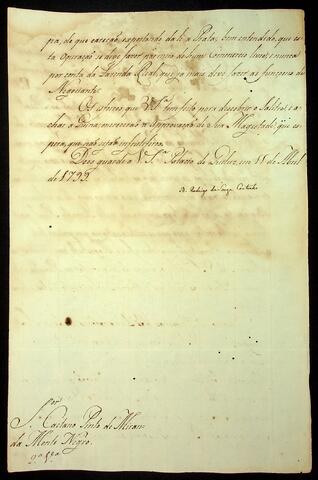 pra, do que a exportando da he a Prata; bem entendido, que es-
ta Operação se deve fazer por meio de hum Commercio livre; e nunca
por conta da Fazenda Real, que já mais deve fazer as funçoens de
Negociante.
Os esforços que V. S.ª tem feito para descobrir o Salitre, e a-
char a Quina, merecerão a Approvação de Sua Magestade, que es-
pera, que não sejão infrutiferos.
Deos guarde a V. S.ª Palacio de Queluz, em 15 de Abril
de 1799.
D. Rodrigo de Souza Coutinho
S.or
S.r Caetano Pinto de Miran-
da Monte Negro.